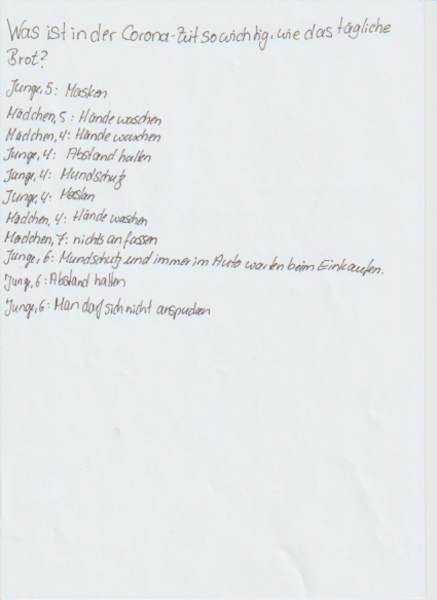 Was ist in der Corona-Zeit so wichtig, wie das tägliche
Brot?
Junge, 5: Masken
Mädchen, 5: Hände waschen
Mädchen, 4: Hände waschen
Junge, 4: Abstand halten
Junge, 4: Mundschutz
Junge, 4: Masken
Mädchen, 4: Hände waschen
Mädchen, 7: nichts anfassen
Junge, 6: Mundschutz und immer im Auto warten beim Einkaufen.
Junge, 6: Abstand halten
Junge, 6: Man darf sich nicht anspucken